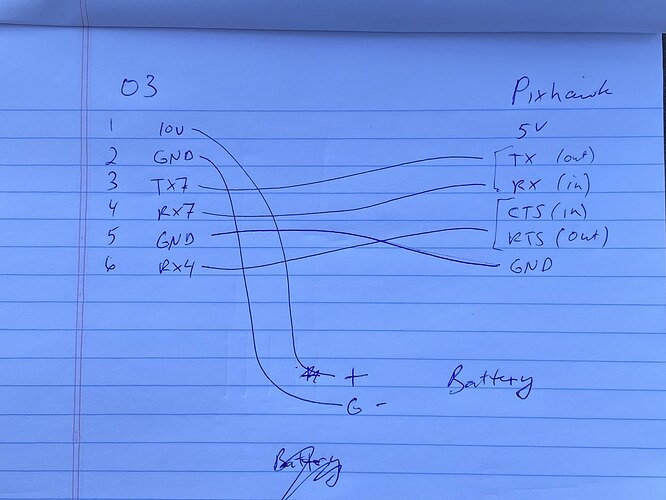 03 Pixhawk
1 10v 5V
2 GND TX (out)
3 TX7 RX (in)
4 RX7 CTS (in)
5 GND RTS (out)
6 RX4 GND
+ Battery
G -
Battery